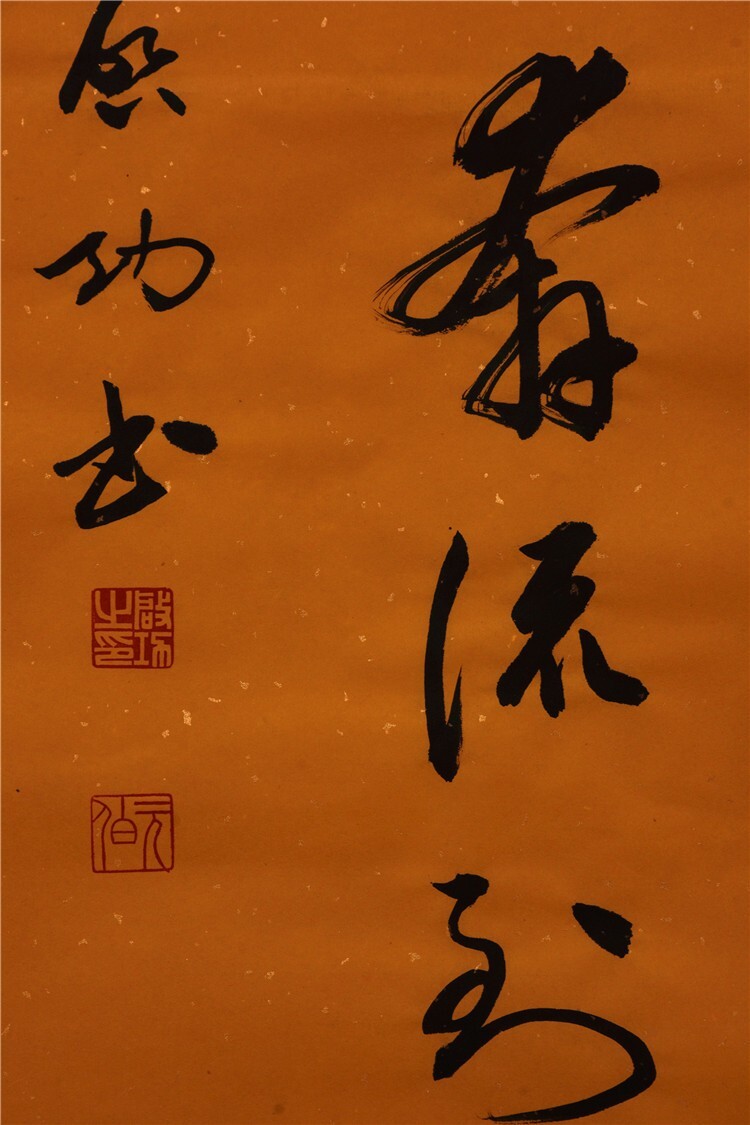 奔流到
启功书
啟功之印
元白